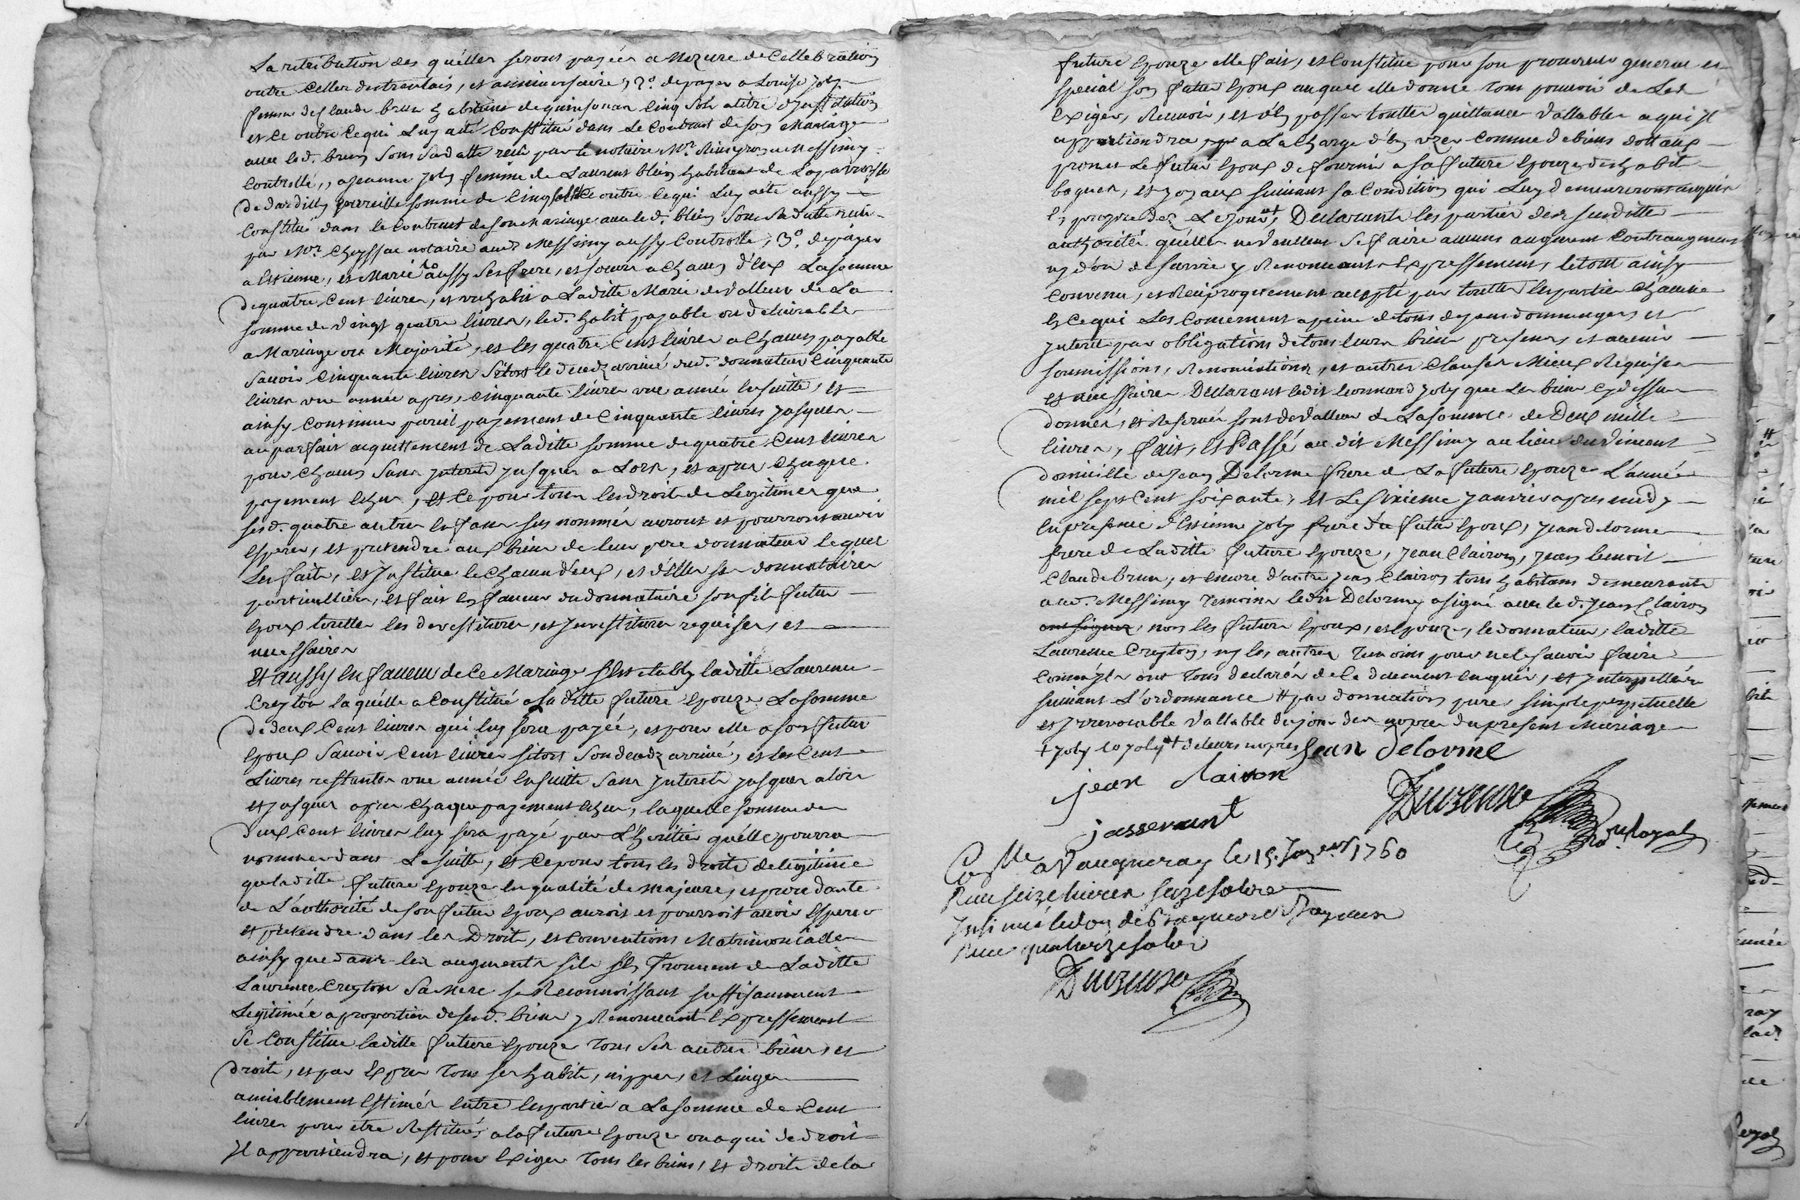 La retribution desquelles seront payées a Mezure de Cellebration
outre celles d'entrentais, et anniversaire, 2.º de payer a Louise Joly
femme de Claude brun habitant de quinsonnas Cinq Sols a titre d'institution
et ce outre ce qui Luy a eté Constitué dans le Contrat de son Mariage
avec led. brun sous sa datte reçu par le notaire Mr. a Messimy
Controllé,, a Jeanne Joly femme de Laurent blein habitant de La parroisse
de dardilly pareille somme de Cinq sols et ce outre ce qui Luy a eté aussy
Constitué dans le Contrat de son mariage avec led. blein sous sa datte reçu
par Mr. Cheyssac notaire aud. Messimy aussy Controllé, 3.º de payer
a Estienne, et Marie Joly aussy ses frere, et soeur a chacun d'eux La somme
de quatre Cent livres, et un habit a Laditte Marie de valleur de La
somme de vingt quatre livres, led. habit payable ou delivrable
a Mariage ou Majorité, et les quatre Cent livres a chacun payable
savoir Cinquante livres sitost le decedz arrivé dud. donnateur Cinquante
livres une année apres, Cinquante livres une année ensuitte, et
ainsy Continuer pareil payement de Cinquante livres Jusques
au parfait acquittement de Laditte somme de quatre Cent livres
pour chacun sans Interets Jusques a Lors, et apres chaque
payement echu, et ce pour tous les droits de Legitimes que
sesd. quatre autres enfans sus nommés auront et pourront avoir
esperer, et pretendre aux biens de leur pere donnateur lequel
les fait, et Institue le chacun d'eux, et d'elles ses donnataires
particulliers, et fait en faveur du donnataire son fils futur
Epoux touttes les devestitures, et Investitures requises, et
necessaires
Et aussy en faveur de ce Mariage s'est etably laditte Laurence
Creyton laquelle a Constitué a saditte future Epouze La somme
de deux Cent livres qui luy sera payée, et pour elle a son futur
Epoux savoir Cent livres sitost son decedz arrivé, et les Cent
Livres restantes une année Ensuitte sans Interets Jusques alors
et Jusques apres chaque payement echu, laquelle somme de
deux Cent livres luy sera payé par L'heritier quelle pourra
nommer dans La suitte, et ce pour tous les droits de legitime
que laditte future Epouze en qualité de majeure, et procedante
de L'authorité de son futur Epoux auroit et pourroit avoir Esperer
et pretendre dans les Droits, et Conventions Matrimonialle
ainsy que dans les augments s'ils s'en trouvent de Laditte
Laurence Creyton sa mere se Reconnoissant suffisamment
Legitimée a proportion de sesd. biens y Renonceant Expressement
Se Constitue laditte future Epouze tous ses autres biens, et
droits, et par Exprez tous ses habits, nippes, et Linges
amiablement Estimés entre les parties a La somme de Cent
livres pour etre Restitués a la future Epouze ou a qui de droit
Il appartiendra, et pour Exiger tous les biens, et droits de la
future Epouze elle fait, et Constitue pour son procureur general et
special son futur Epoux auquel elle donne tous pouvoir de Les
Exiger, Recevoir, et d'en passer touttes quittances vallables a qui Il
appartiendra a La charge d'en uzer Comme de biens dottaux
promet Le futur Epoux de fournir a sa future Epouze des habits
bagues, et Joyaux suivant sa Condition qui Luy demeureront acquis
et propre dez Le Jour, Declarants les parties de susditte
authorité quelles ne veullent se faire aucuns augment Contraugment
ny don de survie y Renonceant Expressement, le tout ainsy
Convenu, et Reciproquement accepté par touttes les parties chacune
En ce qui Les Concernent a peine de tous depens dommages et
Interets par obligations de tous leurs biens presens et avenir
soumissions, Renonciations, et autres clauses Mieux Requises
et necessaires Declarant ledit leonnard Joly que les biens cy dessus
donnés, et Reservés sont de valleur de La somme de Deux mille
livres, fait, et Passé au dit Messimy au lieu du Vincent
domicille de Jean Delorme frere de La future Epouze L'année
mil sept Cent soixante, et Le sixieme Janvier apres midy
En presence d'Estienne Joly frere du futur Epoux, Jean delorme
frere de Laditte future Epouze, Jean Clairon, Jean benoit
Claude brun, et encore d'autre Jean Clairon tous habitans demeurants
aud. Messimy temoins ledit Delorme a signé avec le d. Jean Clairon
non les futurs Epoux, et Epouze, le donnateur, laditte
Laurence Creyton, ny les autres temoins pour ne le savoir faire
Comme Ils ont tous declarés de ce duement enquis, et Interpellés
suivant L'ordonnance # par donnation pure simple perpetuelle
et Irrevocable vallable du jour des nopces du present Mariage
+ Joly Joly de leurs nopces Jean delorme
jean Clairon
jasseraut
Duvzeuse
Con.lle a Vaugneray le 15. Janer 1760
Reçu seize livres seize sols
Insinué le don
Reçu quatorze sols
Duvzeuse